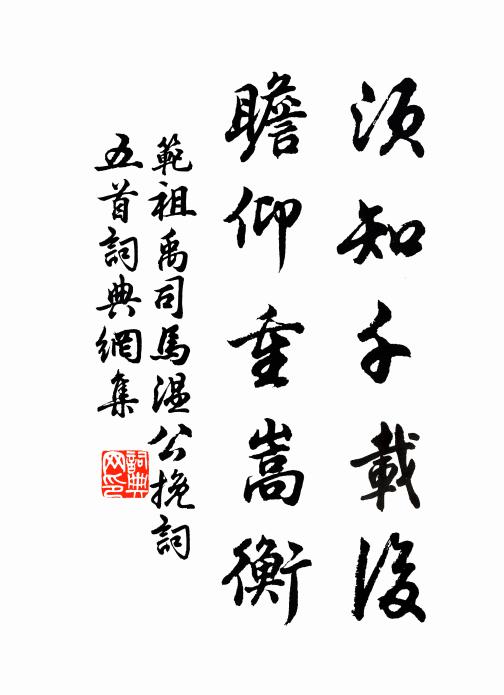 須知千載後
瞻仰重嵩衡
範祖禹司馬溫公挽詞
五首詞典網集
詞典
网印